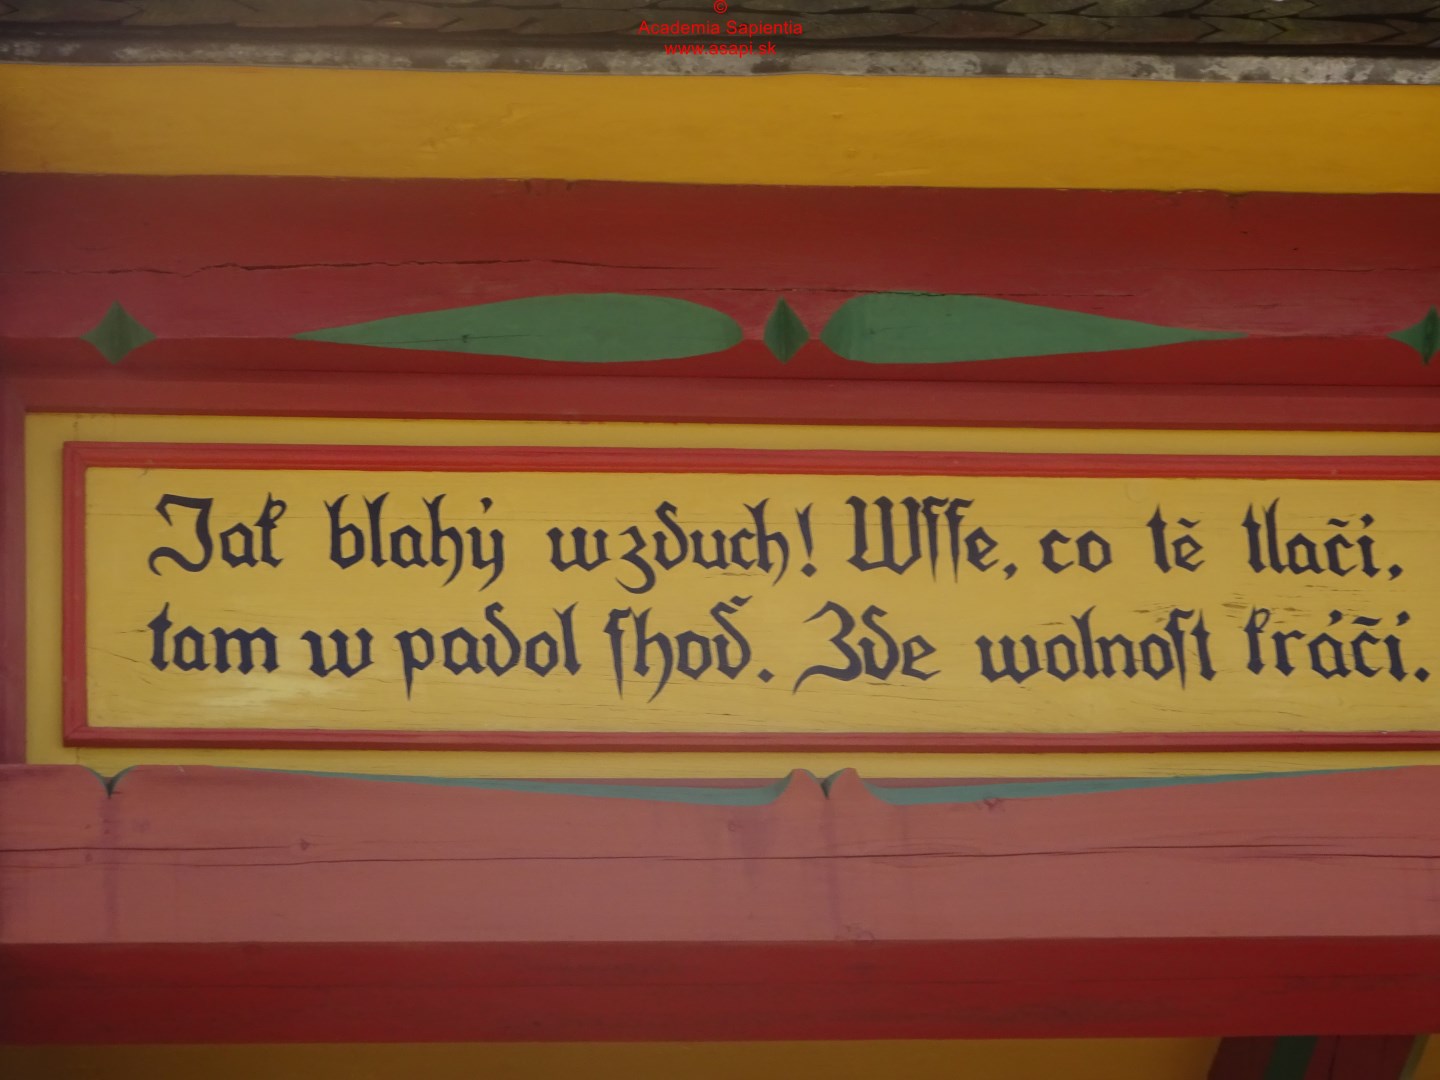 ©
Academia Sapientia
www.asapi.sk
Jak blahý wzduch! Wſſe, co tě tlačí,
tam w padol ſhoď. Zde wolnoſt kráčí.